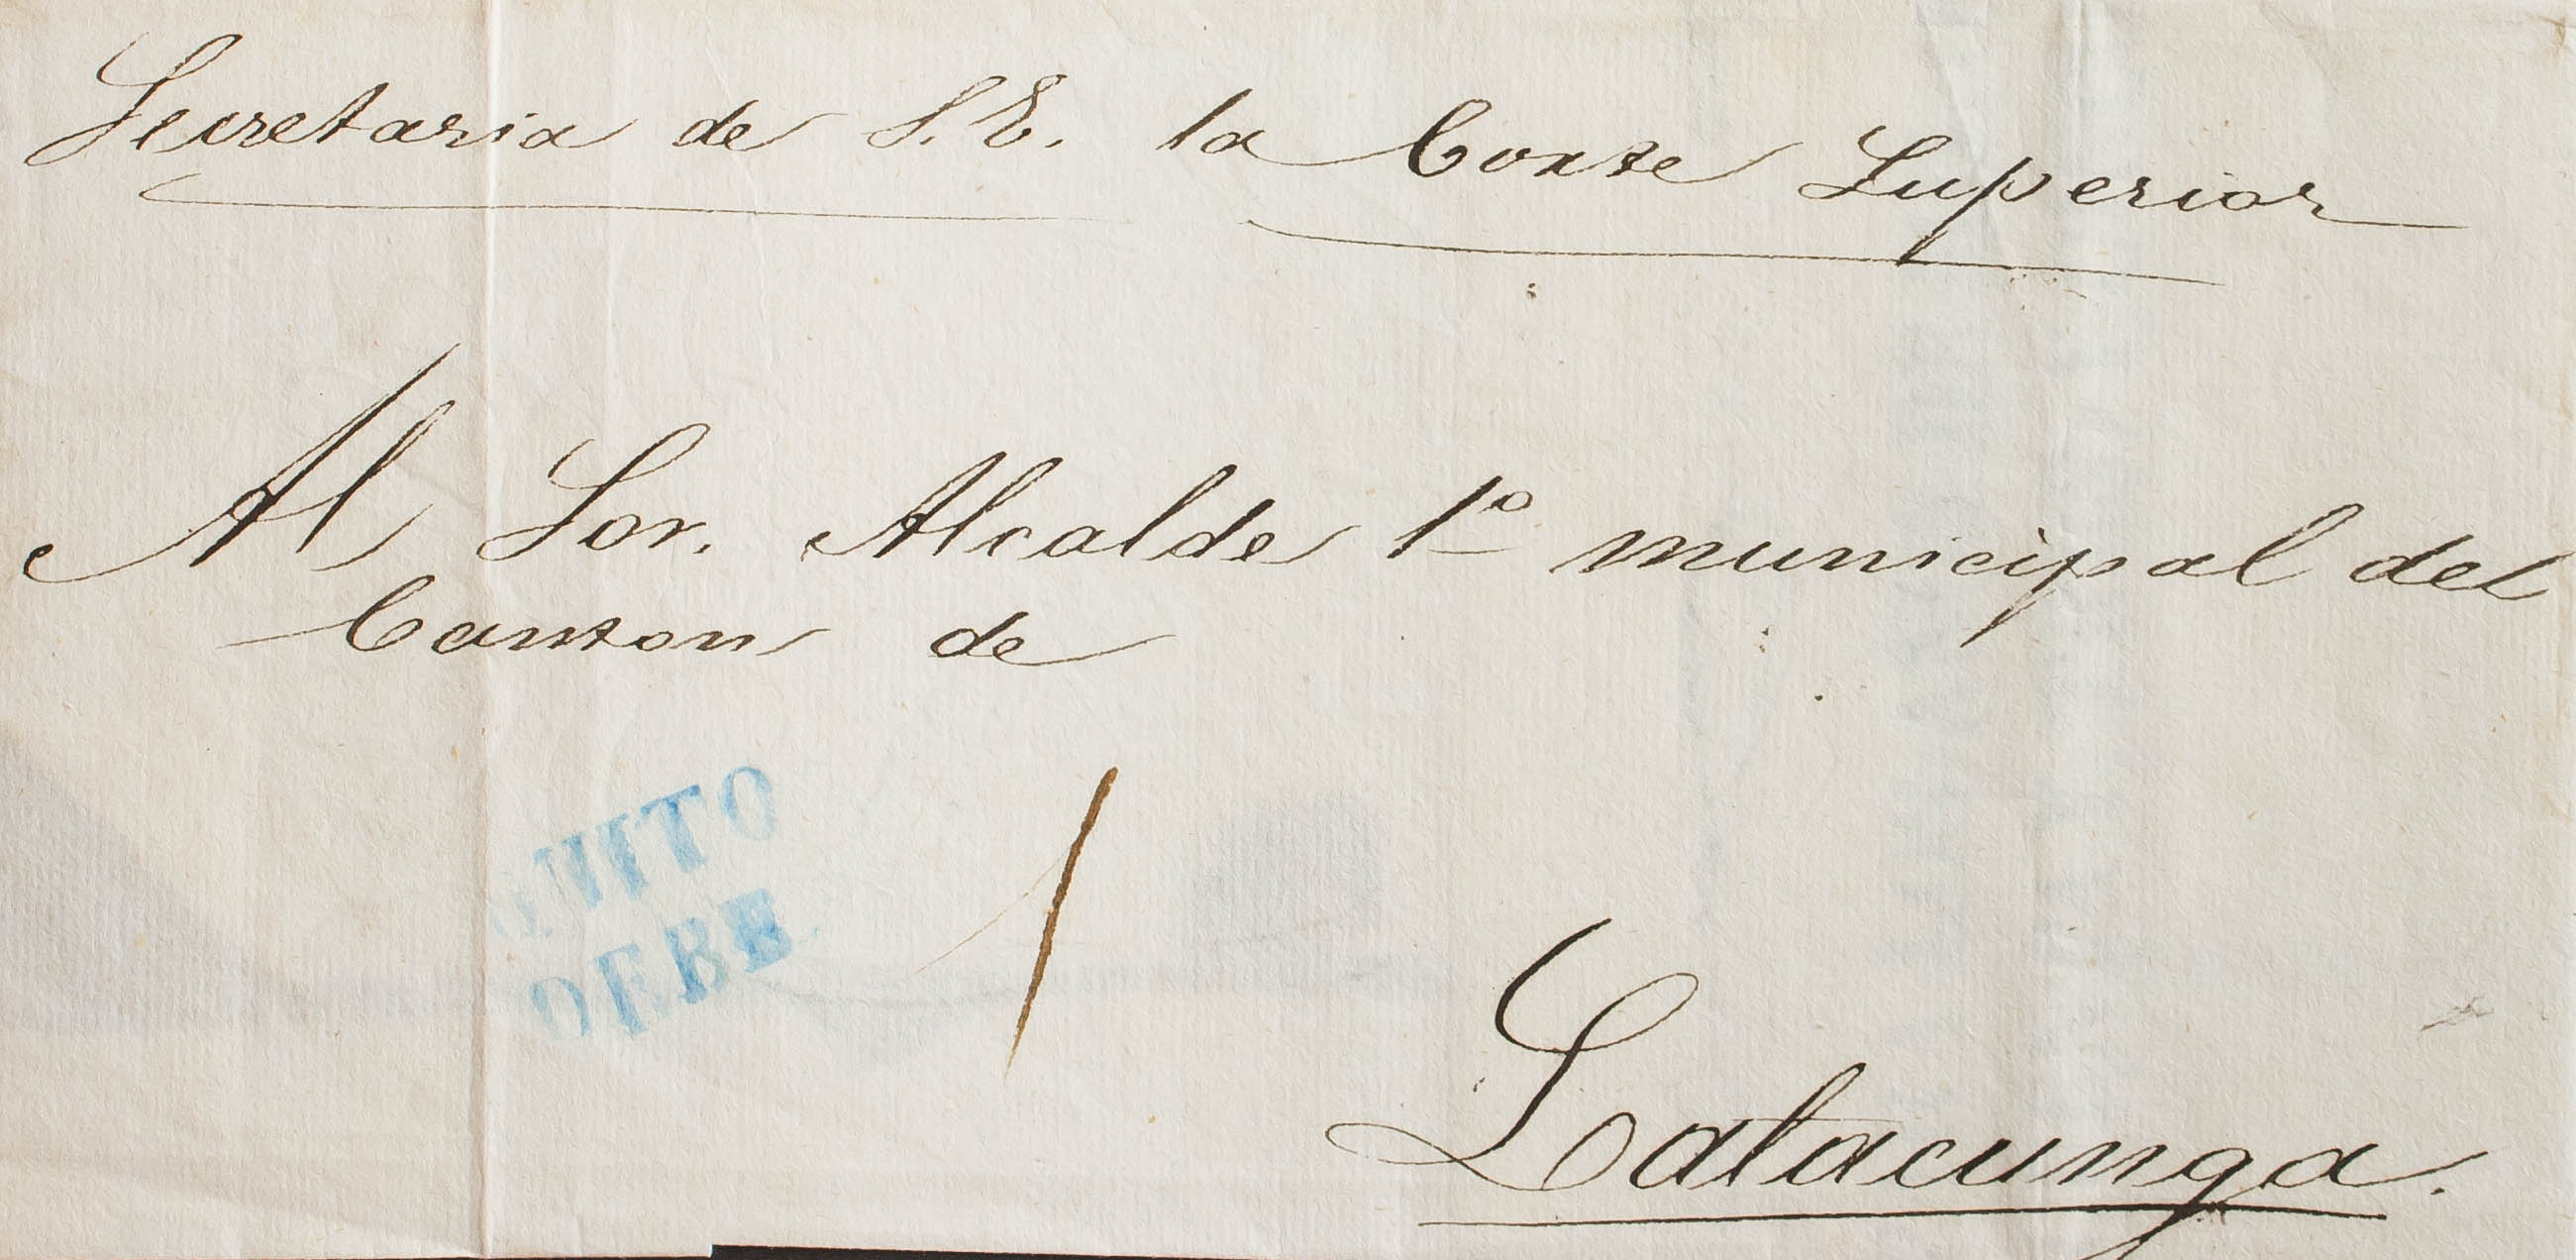 Secretaria de S. E. la Corte Superior
Al Sor. Alcalde 1º municipal del
Canton de
QUITO
DEBE
1
Latacunga.